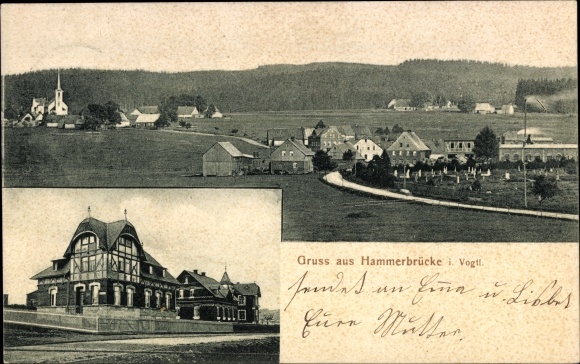 Gruss aus Hammerbrücke i. Vogtl.
sendet an Erna u. Lisbet
Eure Mutter.